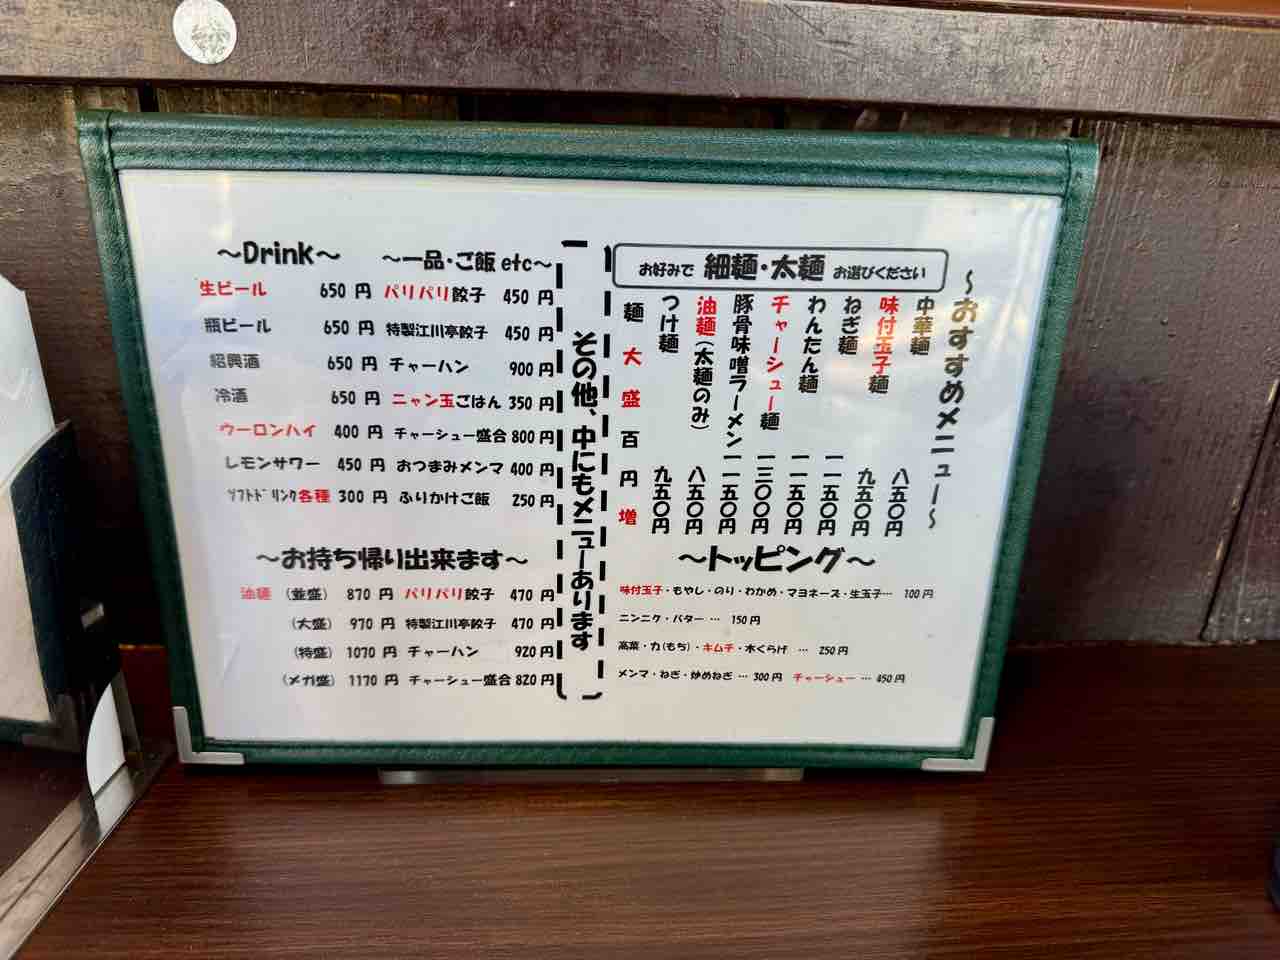 ～Drink～
生ビール 650 円
瓶ビール 650 円
紹興酒 650 円
冷酒 650 円
ウーロンハイ 400 円
レモンサワー 450 円
ソフトドリンク各種 300 円
～一品・ご飯 etc～
パリパリ餃子 450 円
特製江川亭餃子 450 円
チャーハン 900 円
ニャン玉ごはん 350 円
チャーシュー盛合 800 円
おつまみメンマ 400 円
ふりかけご飯 250 円
～お持ち帰り出来ます～
油麺 (並盛) 870 円
(大盛) 970 円
(特盛) 1070 円
(メガ盛) 1170 円
パリパリ餃子 470 円
特製江川亭餃子 470 円
チャーハン 920 円
チャーシュー盛合 820 円
その他、中にもメニューあります
お好みで 細麺・太麺 お選びください
～おすすめメニュー～
中華麺 八五〇円
味付玉子麺 九五〇円
ねぎ麺 一一五〇円
わんたん麺 一一五〇円
チャーシュー麺 一三〇〇円
豚骨味噌ラーメン 一一五〇円
油麺(太麺のみ) 八五〇円
つけ麺 九五〇円
麺大盛百円増
～トッピング～
味付玉子・もやし・のり・わかめ・マヨネーズ・生玉子… 100 円
ニンニク・バター … 150 円
高菜・力(もち)・キムチ・木くらげ … 250 円
メンマ・ねぎ・炒めねぎ … 300 円 チャーシュー … 450 円